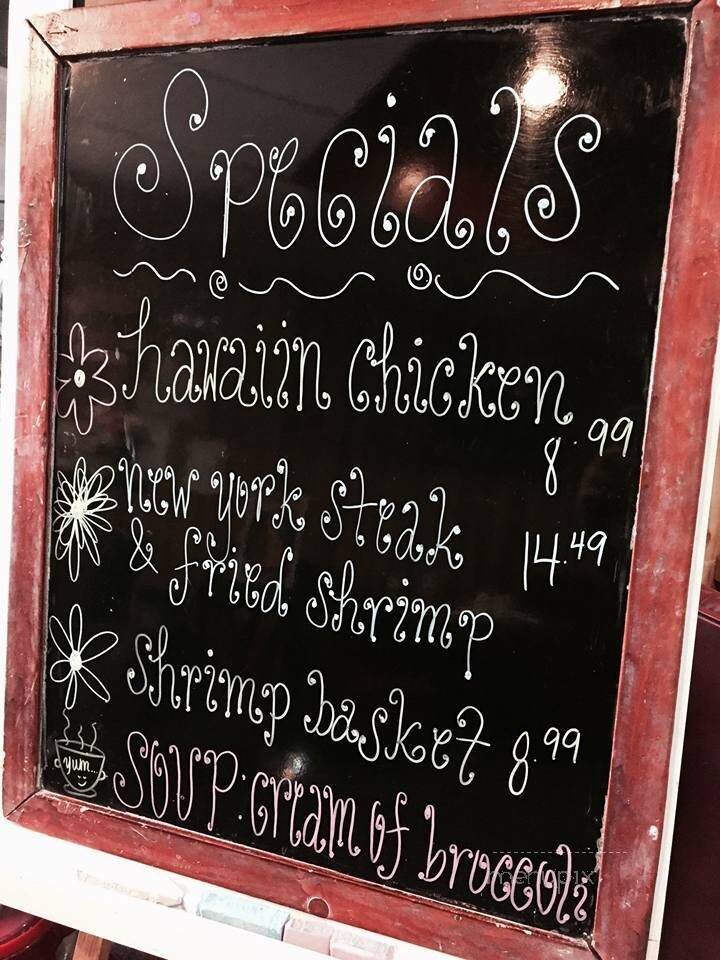 Specials
hawaiin chicken
8.99
new york steak
& fried shrimp
14.49
shrimp basket 8.99
yum...
SOUP: cream of broccoli
menupix